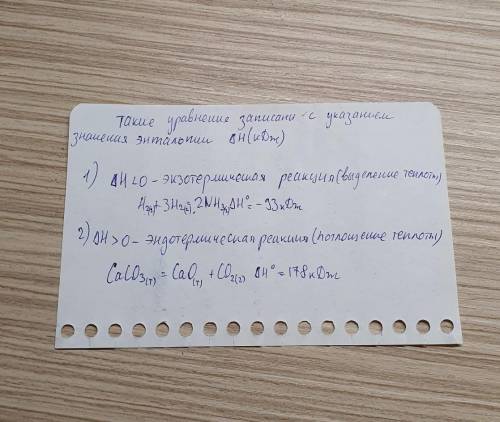 Такие уравнения записани с указанием
значения энтальпии ΔH(кДж)
1) ΔH<0 - экзотермическая реакция(выделение теплоты)
3H₂(г), 2NH₃(г) ΔH°=-93кДж
2) ΔH>0 - эндотермическая реакция(поглощение теплоты)
CaCO₃(т) = CaO(т) + CO₂(г) ΔH°=178кДж